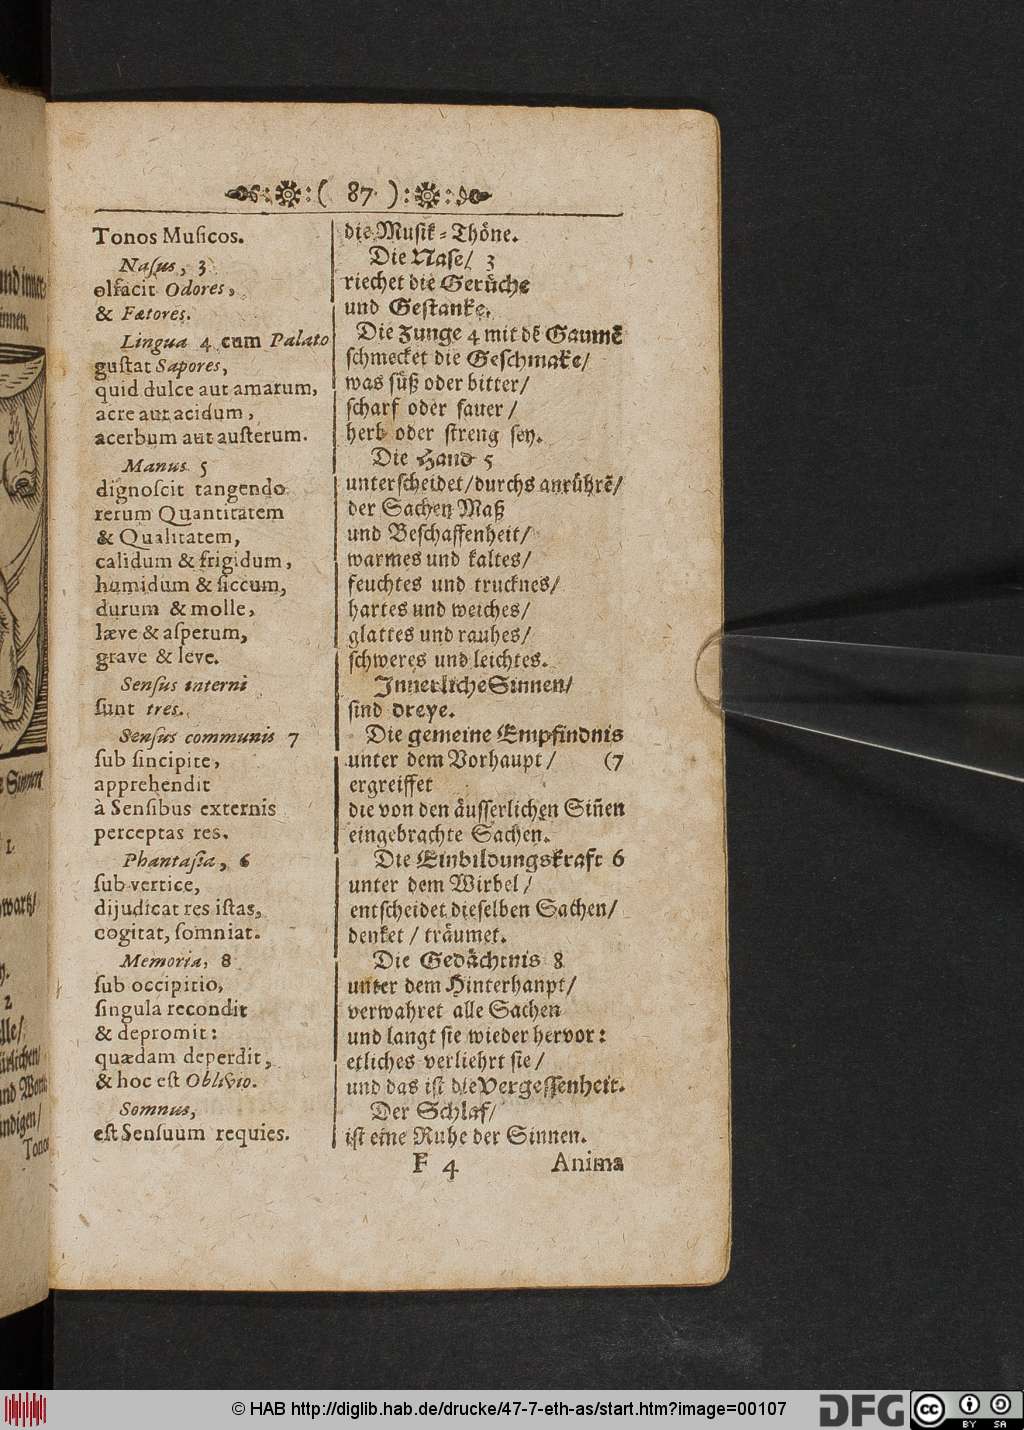 ( 87 )
Tonos Musicos.
Nasus, 3
olfacit Odores,
& Fætores.
Lingua 4 cum Palato
gustat Sapores,
quid dulce aut amarum,
acre aut acidum,
acerbum aut austerum.
Manus 5
dignoscit tangendo
rerum Quantitatem
& Qualitatem,
calidum & frigidum,
humidum & siccum,
durum & molle,
læve & asperum,
grave & leve.
Sensus interni
sunt tres.
Sensus communis 7
sub sincipite,
apprehendit
à Sensibus externis
perceptas res.
Phantasia, 6
sub vertice,
dijudicat res istas,
cogitat, somniat.
Memoria, 8
sub occipitio,
singula recondit
& depromit:
quædam deperdit,
& hoc est Oblivio.
Somnus,
est Sensuum requies.
die Musik-Thöne.
Die Nase/ 3
riechet die Gerüche
und Gestanke.
Die Zunge 4 mit dẽ Gaumẽ
schmecket die Geschmake/
was süß oder bitter/
scharf oder sauer/
herb oder streng sey.
Die Hand 5
unterscheidet/durchs anrührẽ/
der Sachen Maß
und Beschaffenheit/
warmes und kaltes/
feuchtes und trucknes/
hartes und weiches/
glattes und rauhes/
schweres und leichtes.
Innerliche Sinnen/
sind dreye.
Die gemeine Empfindnis
unter dem Vorhaupt/ (7
ergreiffet
die von den äusserlichen Siñen
eingebrachte Sachen.
Die Einbildungskraft 6
unter dem Wirbel/
entscheidet dieselben Sachen/
denket/ träumet.
Die Gedächtnis 8
unter dem Hinterhaupt/
verwahret alle Sachen
und langt sie wieder hervor:
etliches verliehrt sie/
und das ist die Vergessenheit.
Der Schlaf/
ist eine Ruhe der Sinnen.
F 4 Anima
© HAB http://diglib.hab.de/drucke/47-7-eth-as/start.htm?image=00107
DFG
cc BY SA